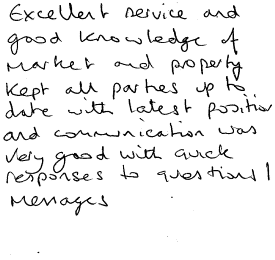 Excellent service and
good knowledge of
market and property
kept all parties up to
date with latest position
and communication was
very good with quick
responses to questions /
messages